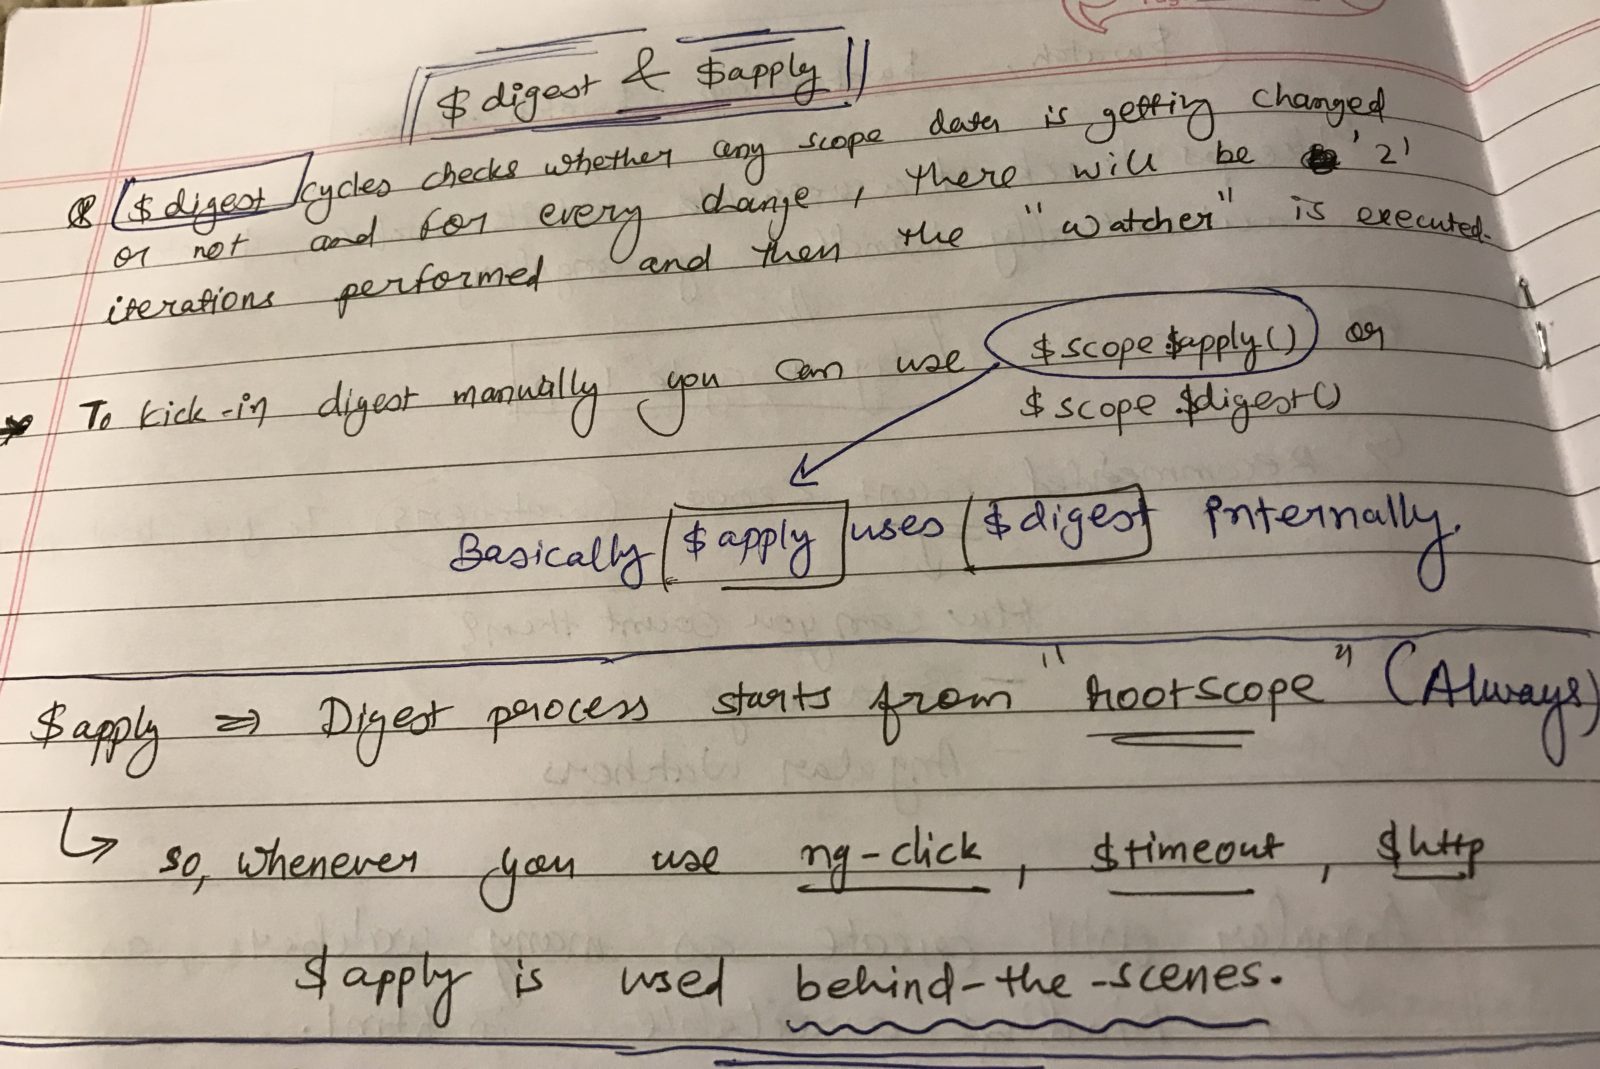 $digest & $apply
$digest cycles checks whether any scope data is getting changed
or not and for every change, there will be '2'
iterations performed and then the "watcher" is executed.
To kick-in digest manually you can use $scope.$apply() or
$scope.$digest()
Basically $apply uses $digest internally.
$apply ⇒ Digest process starts from "rootscope" (Always)
↳ so, whenever you use ng-click, $timeout, $http
$apply is used behind-the-scenes.